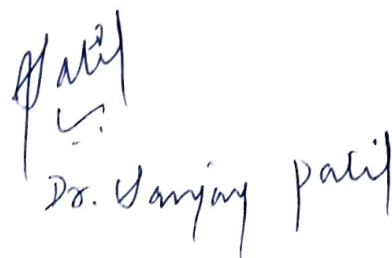 Patil
Dr. Sanjay Patil